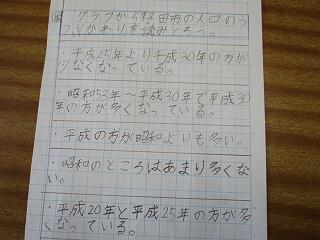 グラフから野田市の人口のう
つりかわりを読みとろう。
・平成25年より平成30年の方が
少なくなっている。
・昭和53年〜平成30年で平成30
年の方が多くなっている。
・平成の方が昭和よりも多い。
・昭和のところはあまり多くな
い。
・平成20年と平成25年の方が多
くなっている。